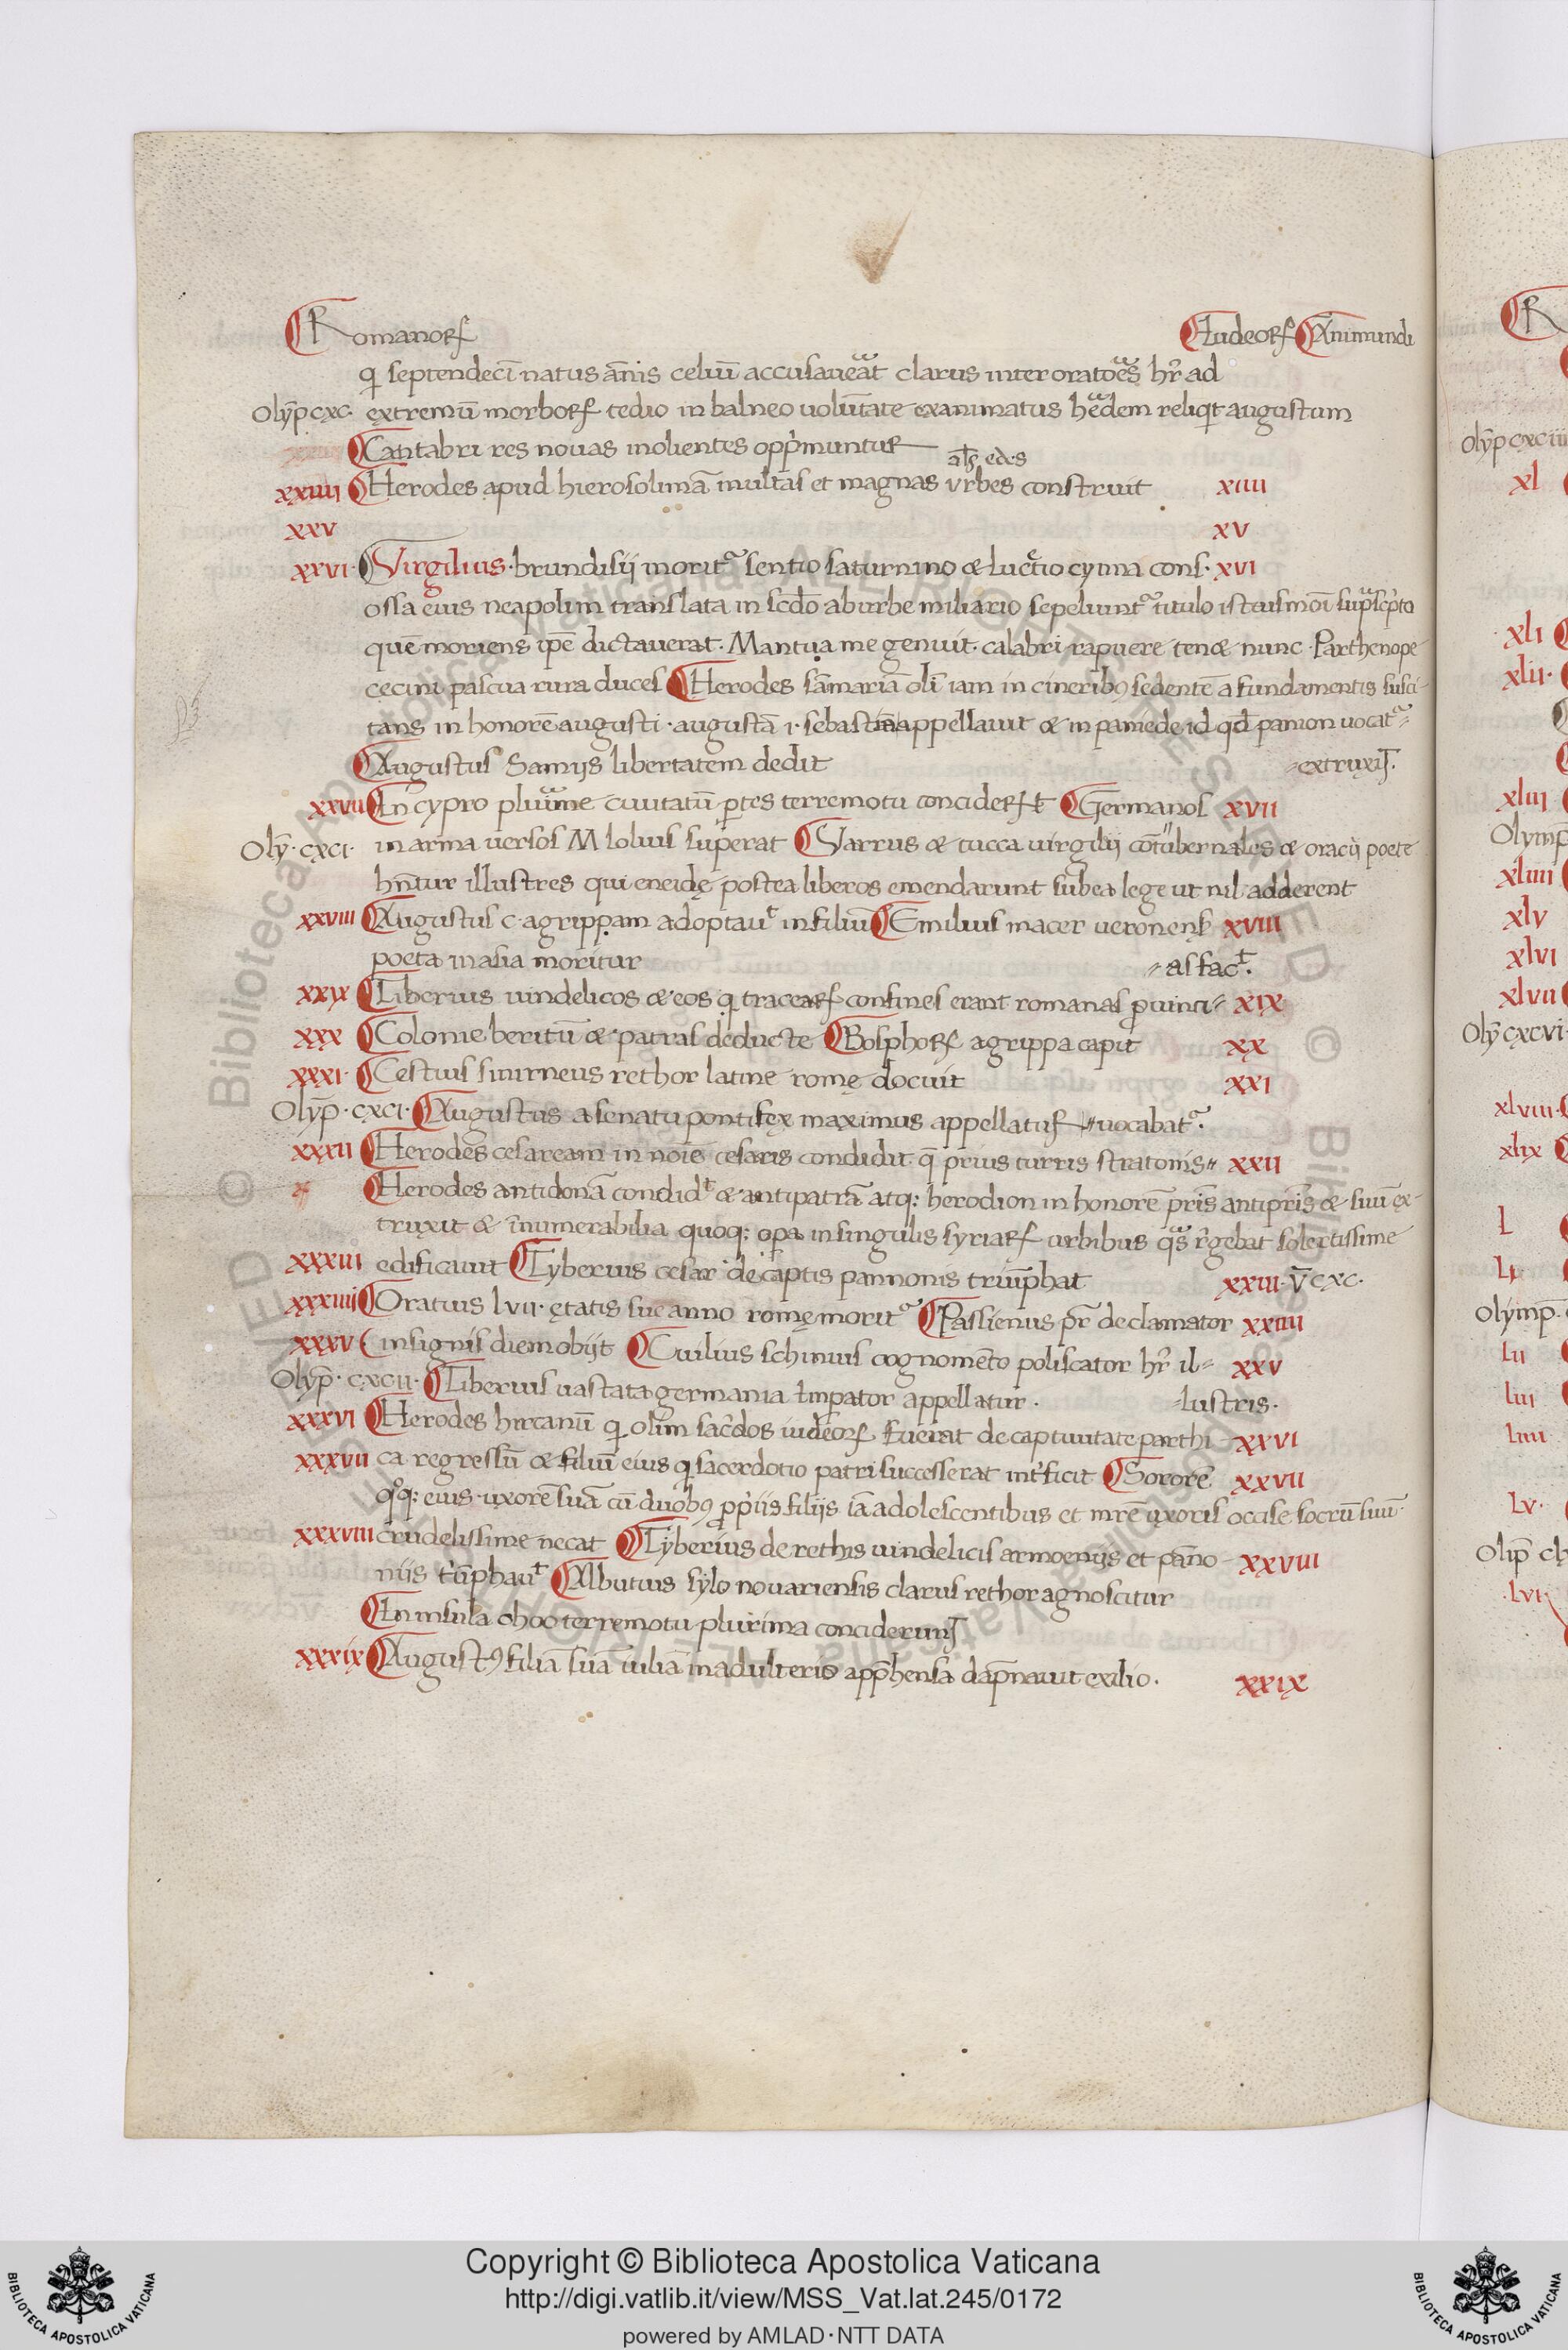 Romanorꝝ Iudeorꝝ Anni mundi
qͥ septendecī natus ān̄is celiū accusaueᷓat clarus inter oratoᷓes hr̄ ad
Olȳp cxc. extremū morborꝝ tedio in balneo uolūtate exanimatus heᷓdem reliqͥt augustum
Cantabri res nouas molientes oppͥmuntur
al̄s edes
xxiiii Herodes apud hierosolimā multas et magnas vrbes construit xiiii
xxv xv
xxvi. Virgilius. brundisij moritᷣ sentio saturnino & lucͤtio cynna cons. xvi
ossa eius neapolim translata in scd̄o ab urbe miliario sepeliuntᷣ titulo istiusmōi supᷓscpͥto
quē moriens ip̄e dictauerat. Mantua me genuit. calabri rapuere tenᷣ nunc. Parthenope
cecini pascua rura duces Herodes samariā oli iam in cineribꝰ sedentē a fundamentis susci-
tans in honorē augusti. augustā i. sebastēn appellauit & in paniede id qd̄ panion uocatᷣ〃
Augustus Samijs libertatem dedit 〃extruxit.
xxvii In cypro pluᷓime ciuitatū ꝑtes terremotu conciderꝝt Germanos xvii
Olȳ. cxci. in arma uersos M lolius suꝑerat Varrus & tucca uirgilij cōtubernales & oracij poete
hn̄tur illustres qui eneidę postea liberos emendarunt sub ea lege ut nil adderent
xxviii Augustus c. agrippam adoptauᵗ in filiū Emilius macer ueronens xviii
poeta in asia moritur 〃as facᵗ.
xxix Tiberius uindelicos & eos qͥ tracearꝝ confines erant romanas ꝓuinci〃 xix
xxx Colonie beritū & patras deducte Bosphorꝝ agrippa capit xx
xxxi. Cestius smirneus rethor latine romę docuit xxi
Olȳp. cxci. Augustus a senatu pontifex maximus appellatus 〃uocabatᷣ.
xxxii Herodes cesaream in noīe cesaris condidit. q̄ prius turris stratonis〃 xxii
Herodes antidonā condidᵗ & antipatrā atqꝫ herodion in honorē pr̄is antipr̄is & suū ex-
truxit & īnumerabilia quoqꝫ oꝑa in singulis syriarꝝ urbibus qᷓs r̄gebat solertissime
xxxiii edificauit Tyberius cesar de captis pannonis triūphat xxiii. V̄cxc.
xxxiiii Oratius lvii. ętatis sue anno romę moritᷣ Passienus pr̄ declamator xxiiii
xxxv insignis diem obijt Cuilius schinus cognomēto poliscator hr̄ il〃 xxv
Olȳp. cxcii. Tiberius uastata germania Imꝑator appellatur. 〃lustris.
xxxvi Herodes hircanū qͥ olim sacͬdos iudeorꝝ fuerat de captiuitate parthi- xxvi
xxxvii ca regressū & filiū eius qͥ sacerdotio patri successerat intͬficit Sororē xxvii
qͦqꝫ eius uxorē suā cū duobꝰ ꝓpͥiis filijs iā adolescentibus et mr̄e uxoris occise socrū suū
xxxviii crudelissime necat Tyberius de rethis uindelicis armoenijs et pāno- xxviii
niis tͥūphauᵗ Albutius sylo nouariensis clarus rethor agnoscitur
In insula choo terremotu plurima conciderunt
xxxix Augustꝰ filiā suā iuliā in adulterio app̄hensā dāpnauit exilio. xxix
Copyright © Biblioteca Apostolica Vaticana
http://digi.vatlib.it/view/MSS_Vat.lat.245/0172
powered by AMLAD·NTT DATA